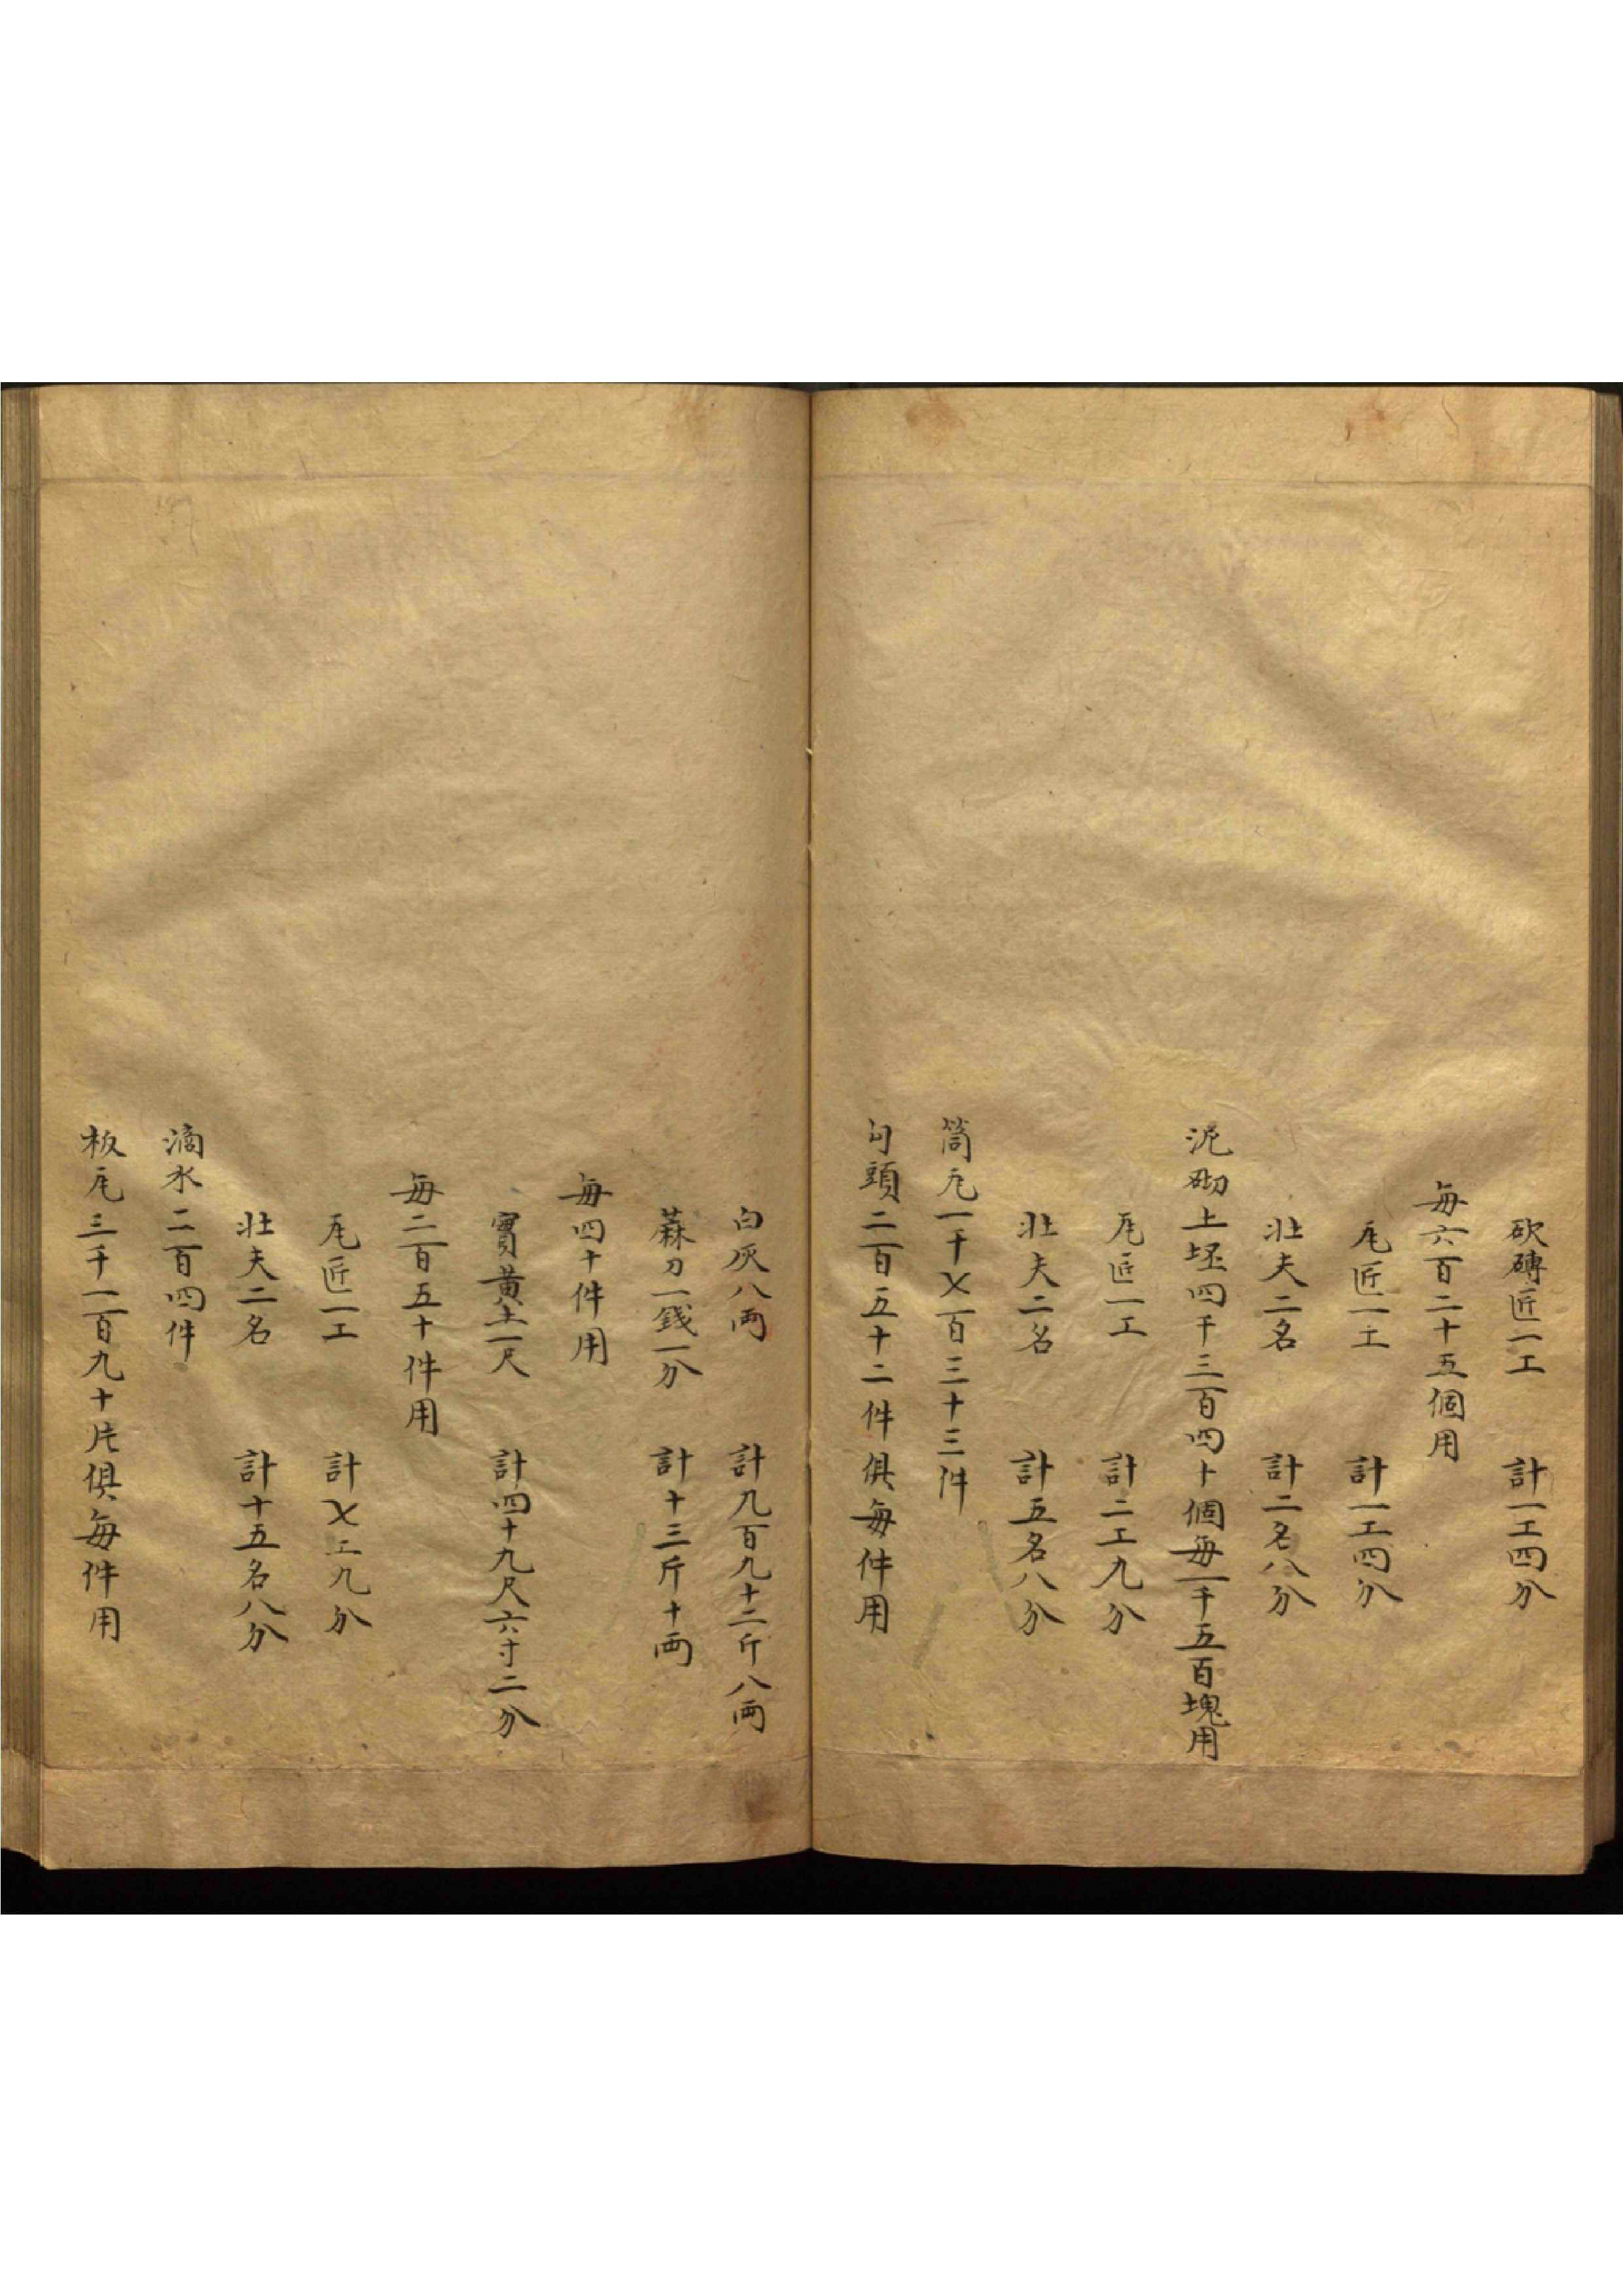 砍磚匠一工　計一工四分
每六百二十五個用
瓦匠一工　計一工四分
壯夫二名　計二名八分
泥砌土坯四千三百四十個每一千五百塊用
瓦匠一工　計二工九分
壯夫二名　計五名八分
筒瓦一千七百三十三件
勾頭二百五十二件俱每件用
白灰八兩　計九百九十二斤八兩
蔴刀一錢一分　計十三斤十兩
每四十件用
實黃土一尺　計四十九尺六寸二分
每二百五十件用
瓦匠一工　計七工九分
壯夫二名　計十五名八分
滴水二百四件
板瓦三千一百九十片俱每件用